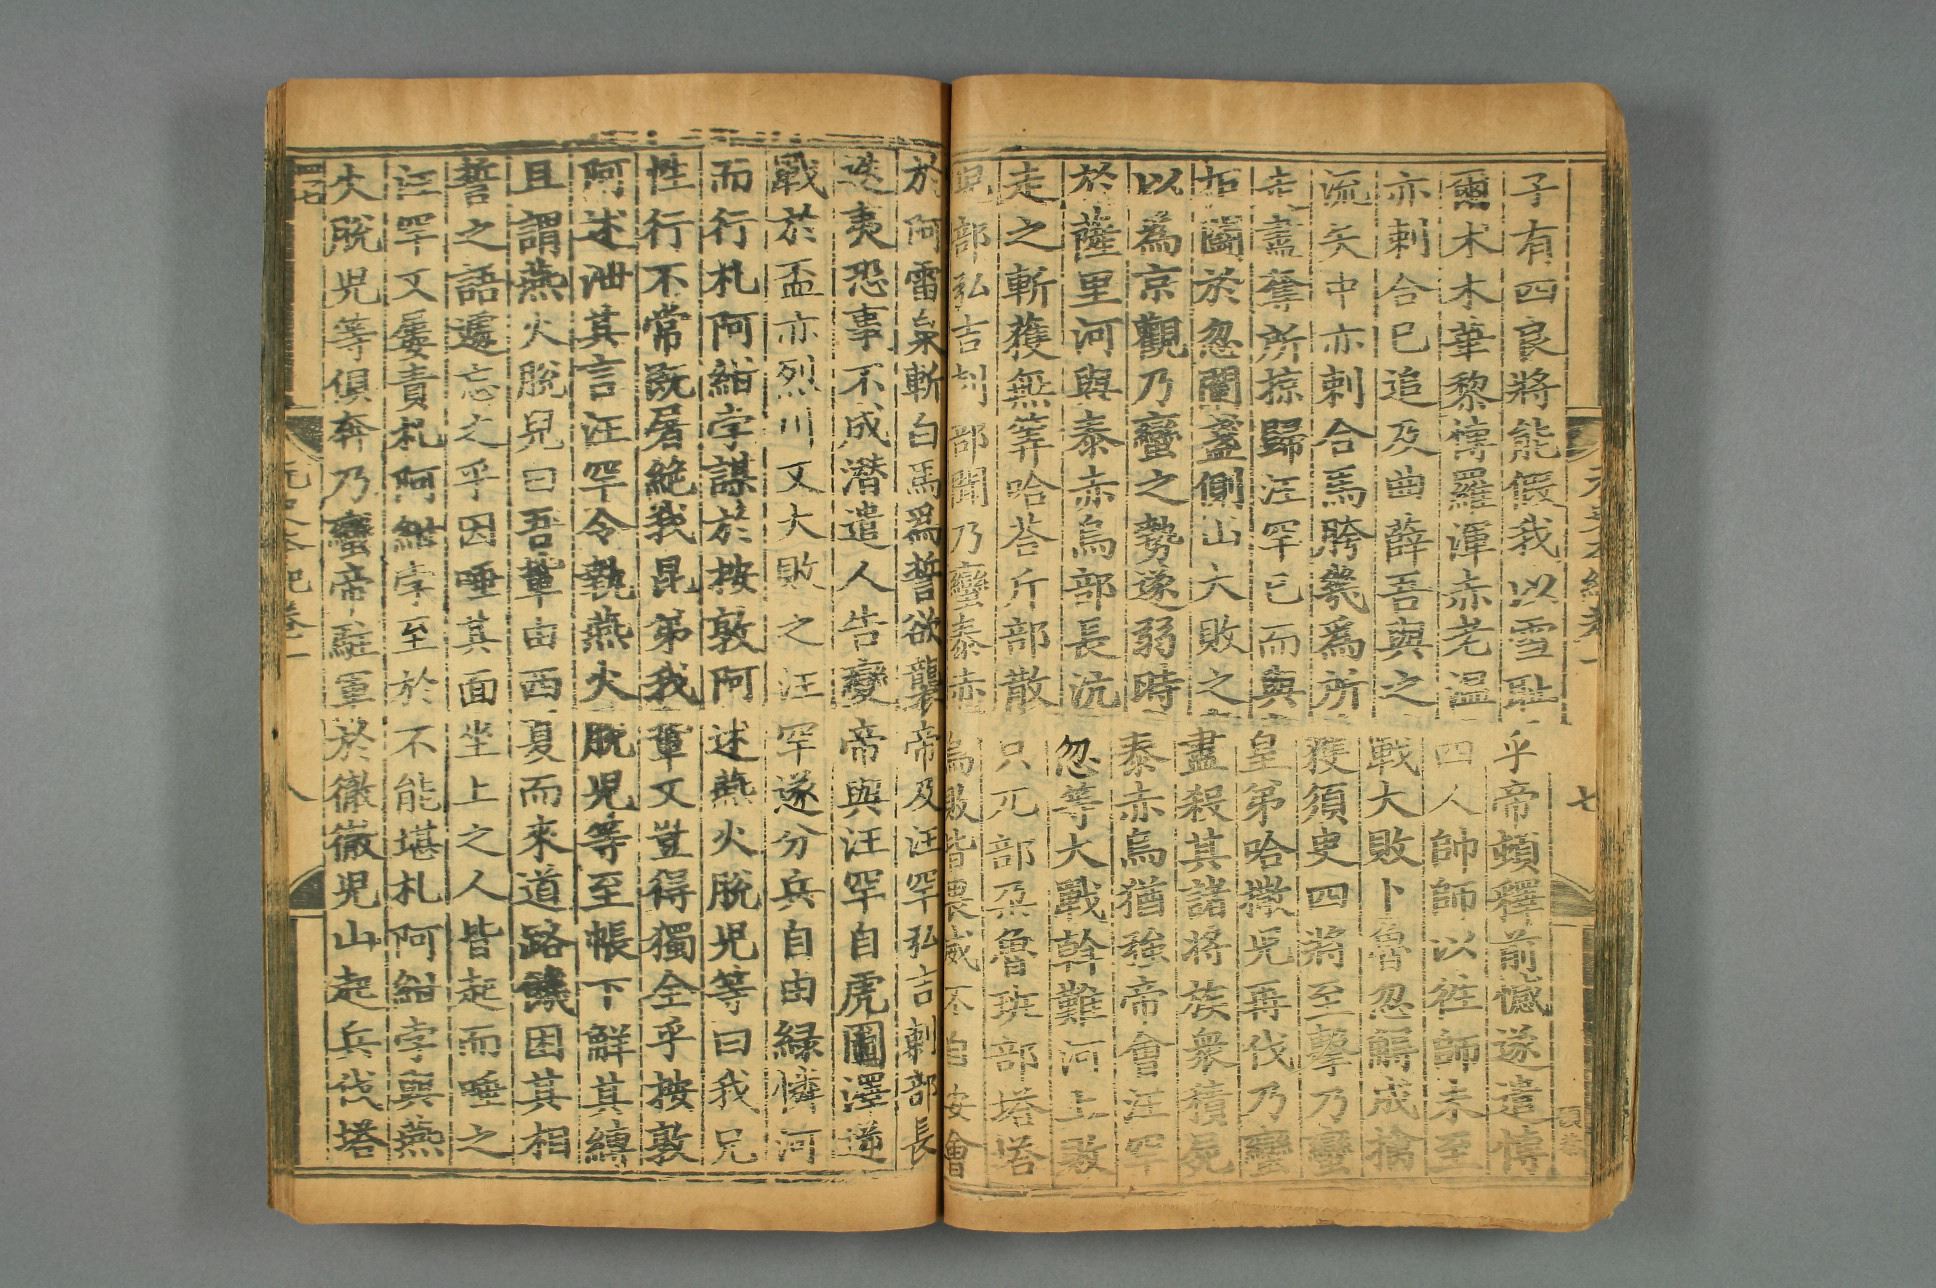 元史本紀卷一
七
子有四良將能假我以雪恥乎帝頓釋前憾遂遣博
爾术木華黎博羅渾赤老溫四人帥師以徃師未至
亦剌合已追及曲薛吾與之戰大敗卜魯忽䚟成擒
流矢中亦剌合馬胯幾爲所獲須臾四將至擊乃蠻
走盡奪所掠歸汪罕已而與皇弟哈撒兒再伐乃蠻
拒鬬於忽闌盞側山大敗之盡殺其諸將族衆積屍
以爲京觀乃蠻之勢遂弱時泰赤烏猶強帝會汪罕
於薩里河與泰赤烏部長沆忽等大戰斡難河上敗
走之斬獲無筭哈荅斤部散只兀部朶魯班部塔塔
兒部弘吉剌部聞乃蠻泰赤烏敗皆畏威不自安會
於阿雷泉斬白馬爲誓欲襲帝及汪罕弘吉剌部長
迭夷恐事不成潛遣人告變帝與汪罕自虎圖澤逆
戰於盃亦烈川又大敗之汪罕遂分兵自由緑憐河
而行札阿紺孛謀於按敦阿述燕火脫兒等曰我兄
性行不常旣屠絶我昆弟我輩又豈得獨全乎按敦
阿述泄其言汪罕令執燕火脫兒等至帳下解其縛
且謂燕火脫兒曰吾輩由西夏而來道路饑困其相
誓之語遽忘之乎因唾其面坐上之人皆起而唾之
汪罕又屢責札阿紺孛至於不能堪札阿紺孛與燕
火脫兒等俱奔乃蠻帝駐軍於徹徹兒山起兵伐塔
元史本紀卷一
八